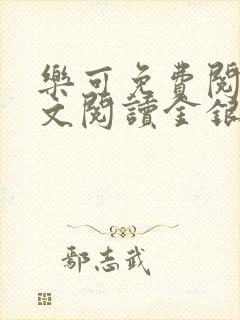 樂可免費閱
文閱讀全銀
鄢志武